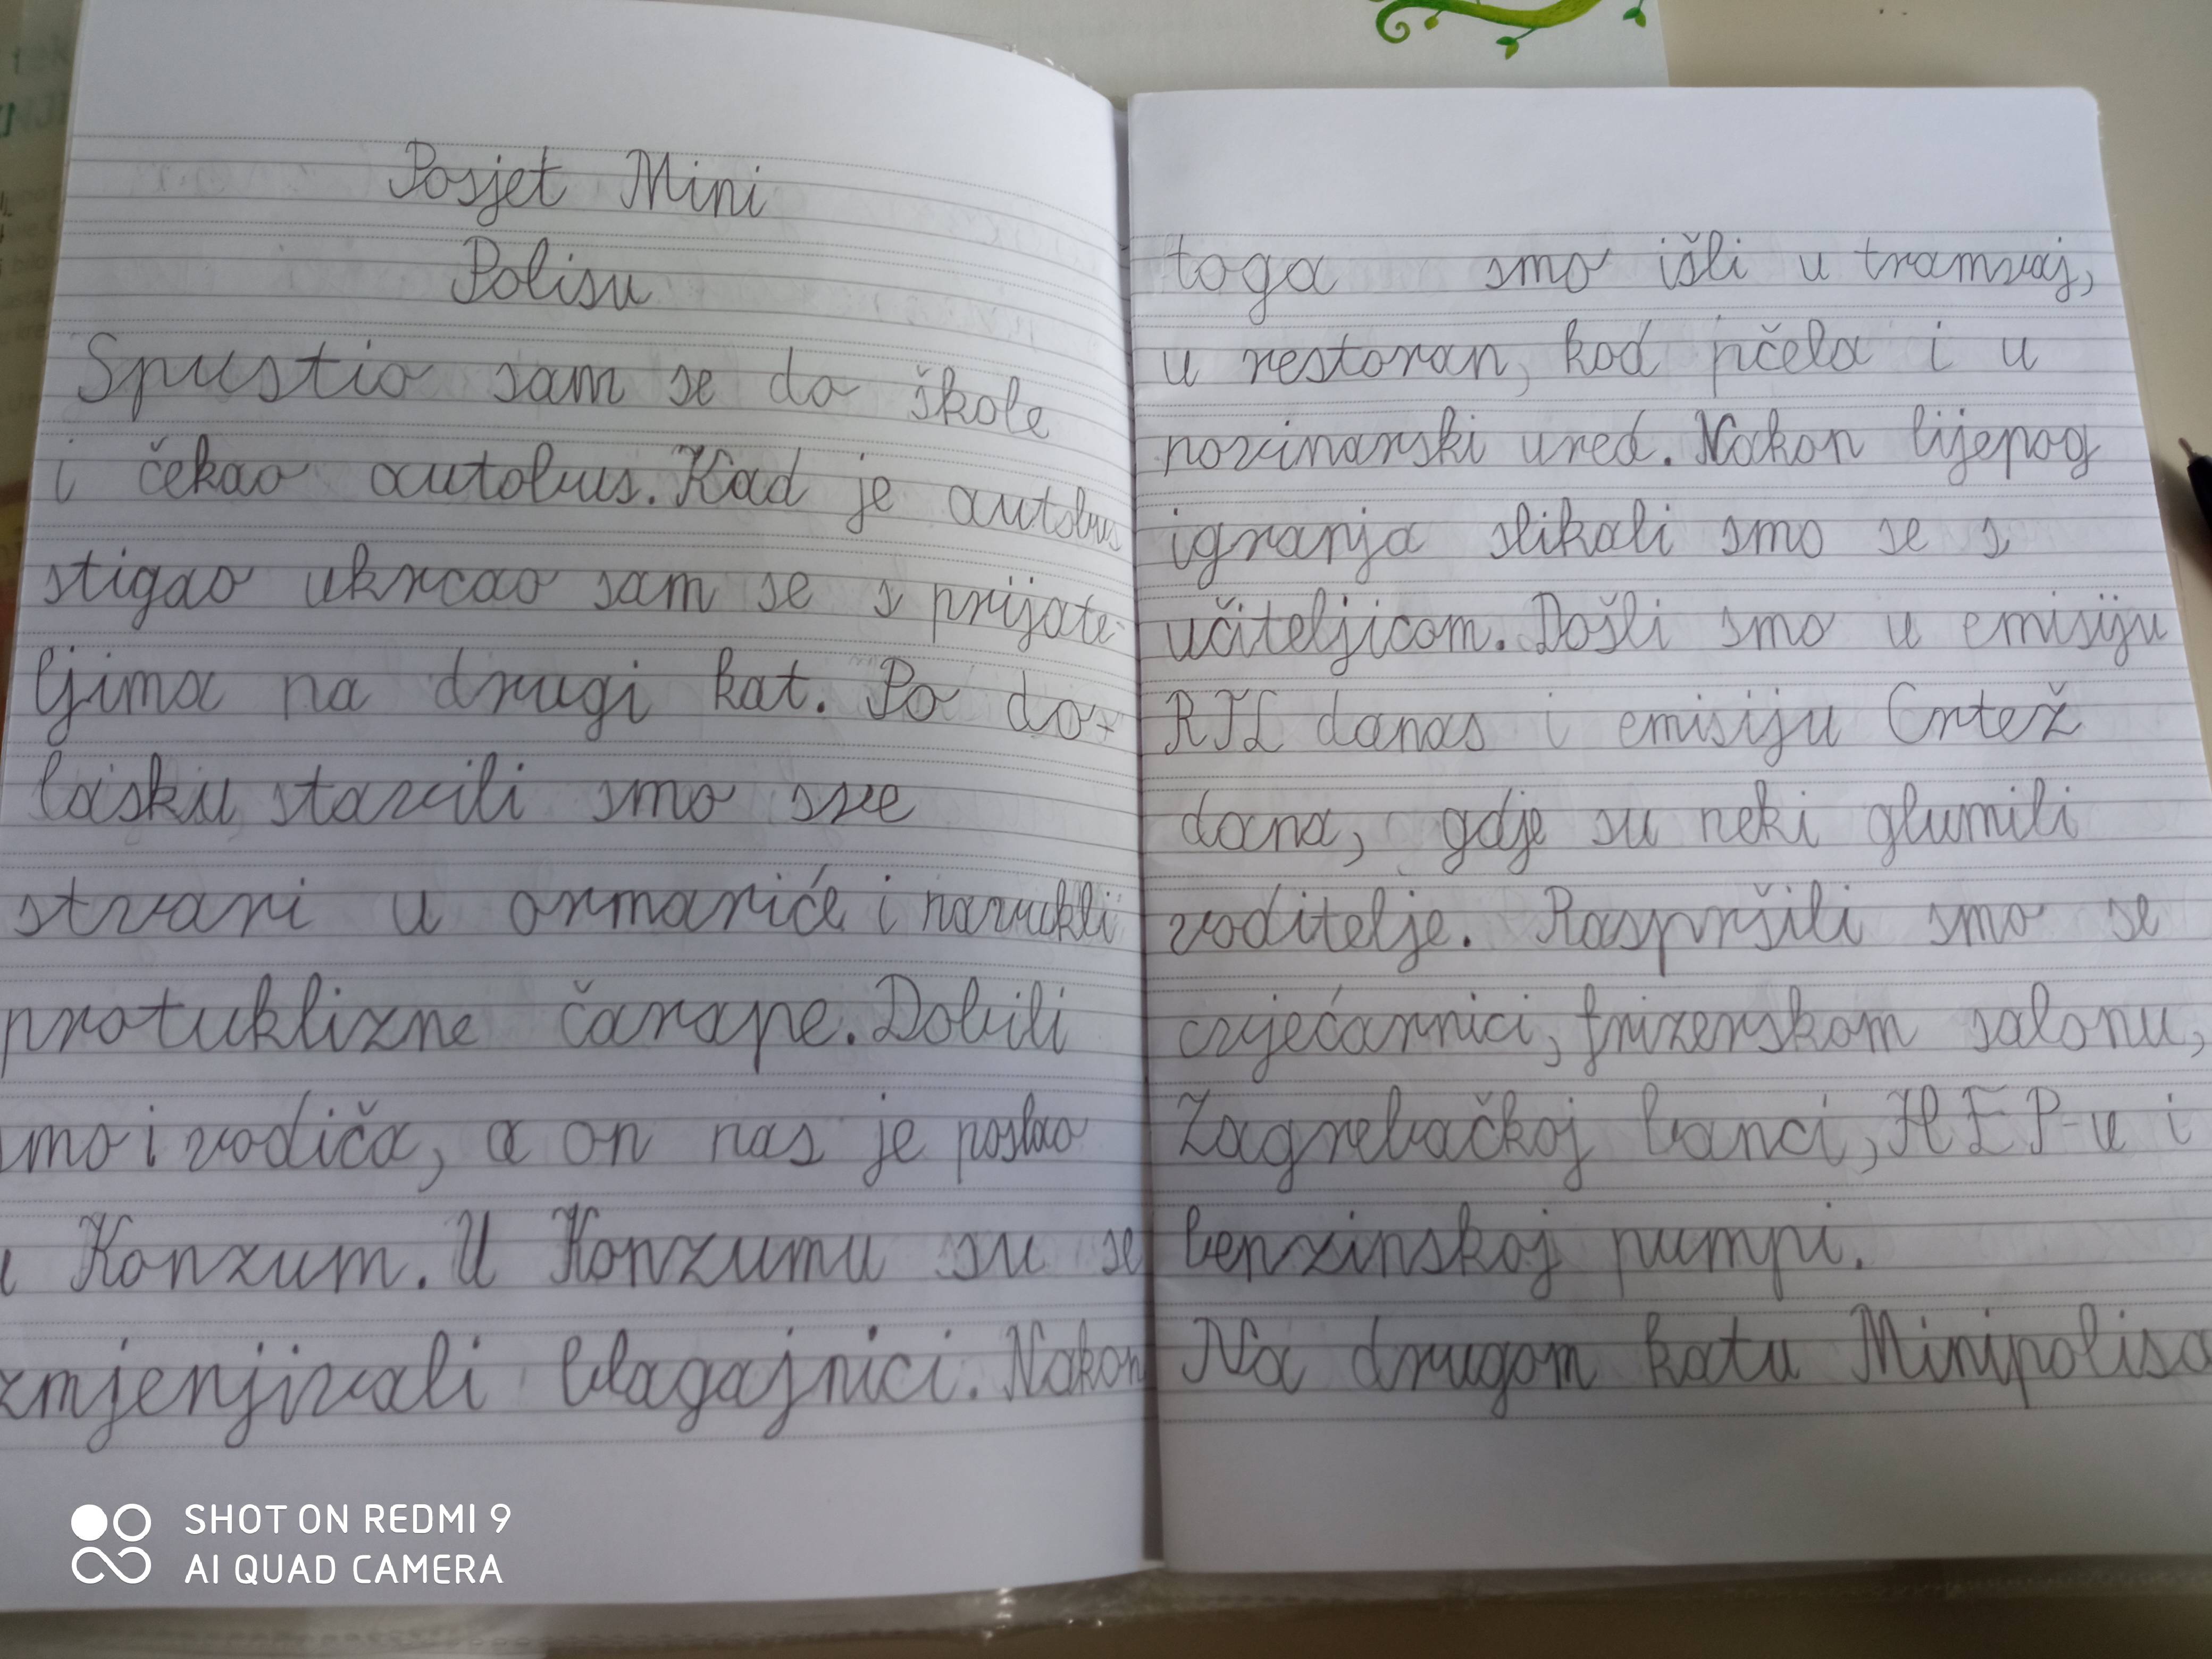 Posjet Mini
Polisu
Spustio sam se do škole
i čekao autobus. Kad je autobus
stigao ukrcao sam se s prijate-
ljima na drugi kat. Po do-
lasku stavili smo sve
stvari u ormariće i navukli
protuklizne čarape. Dobili
smo i vodiča, a on nas je poslao
u Konzum. U Konzumu su se
izmjenjivali blagajnici. Nakon
toga smo išli u tramvaj,
u restoran, kod pčela i u
novinarski ured. Nakon lijepog
igranja slikali smo se s
učiteljicom. Došli smo u emisiju
RTL danas i emisiju Crtež
dana, gdje su neki glumili
voditelje. Raspršili smo se
cvjećarnici, frizerskom salonu,
Zagrebačkoj banci, HEP-u i
benzinskoj pumpi.
Na drugom katu Minipolisa
SHOT ON REDMI 9
AI QUAD CAMERA